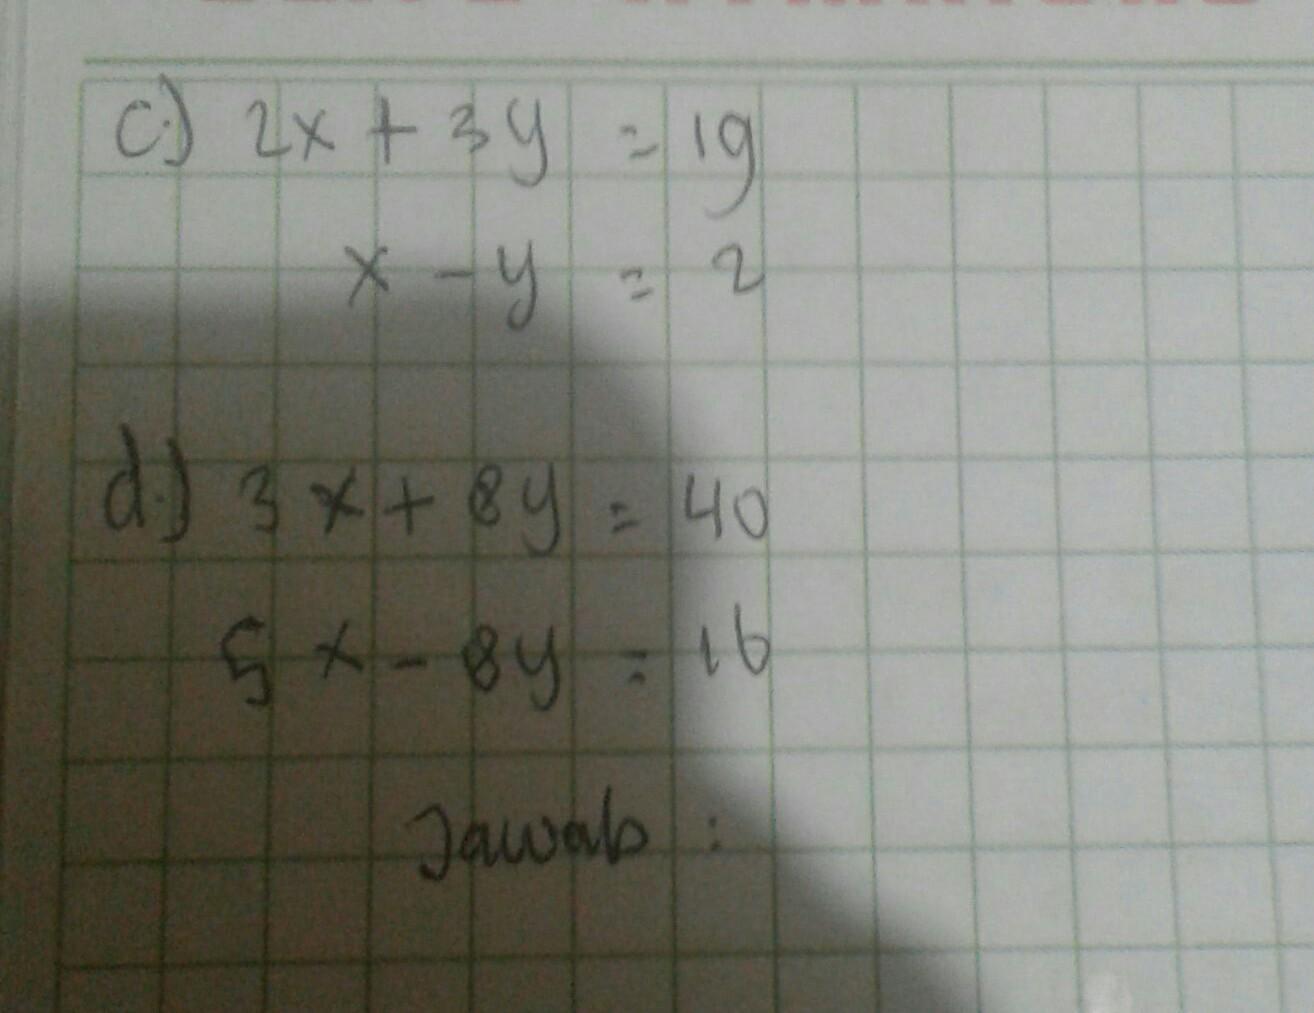 c.) 2x + 3y = 19
x - y = 2
d.) 3x + 8y = 40
5x - 8y = 16
Jawab :